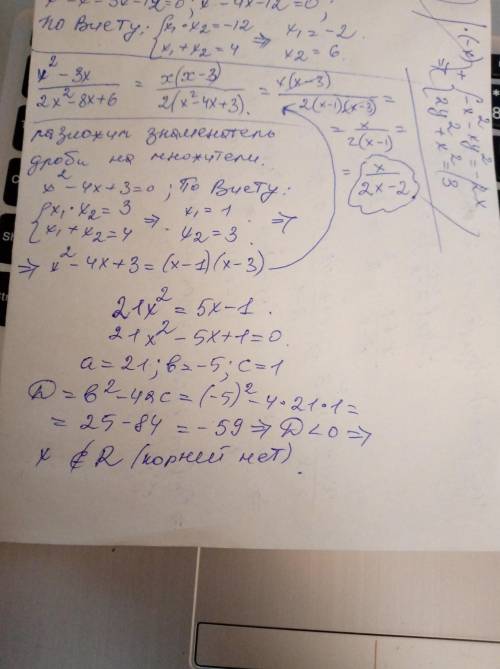 x² - x - 3x - 12 = 0; x² - 4x - 12 = 0
по Виету: { x₁ · x₂ = -12   x₁ = -2
x₁ + x₂ = 4 ⇒ x₂ = 6.
x² - 3x / 2x² - 8x + 6 = x(x - 3) / 2(x² - 4x + 3) = x(x - 3) / 2(x - 1)(x - 3) =
= x / 2(x - 1) =
= x / 2x - 2
разложим знаменатель
дроби на множители.
x² - 4x + 3 = 0; по Виету:
{ x₁ · x₂ = 3 ⇒ x₁ = 1 ⇒
x₁ + x₂ = 4   x₂ = 3
⇒ x² - 4x + 3 = (x - 1)(x - 3)
21x² = 5x - 1.
21x² - 5x + 1 = 0.
a = 21; в = -5; c = 1
D = в² - 4ac = (-5)² - 4 · 21 · 1 =
= 25 - 84 = -59 ⇒ D < 0 ⇒
x ∉ R (корней нет).